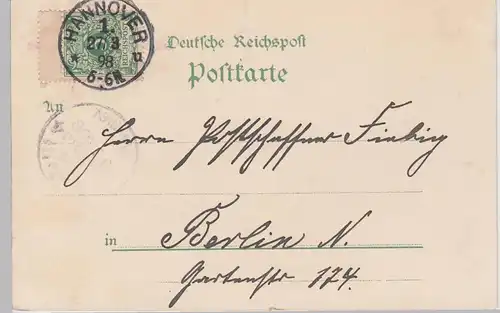 HANNOVER
1.
27.3
98
* 5-6N u
Deutsche Reichspost
Postkarte
An
Herrn Postschaffner Fiebig
in Berlin N.
Gartenstr 174.